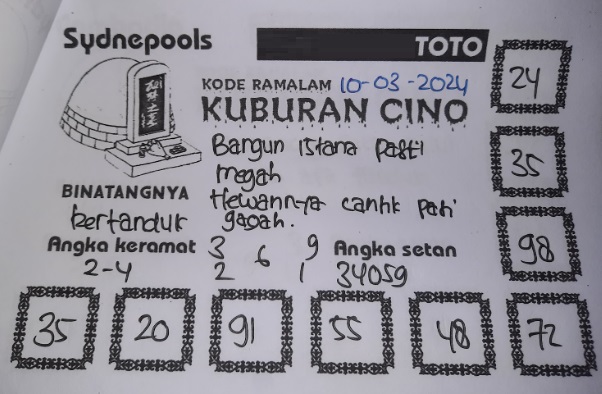 Sydnepools
TOTO
24
KODE RAMALAM 10-03-2024
KUBURAN CINO
Bangun istana pasti
megah
Hewannya cantik pati
gagah.
35
BINATANGNYA
bertanduk
Angka keramat
2-4
3 6 9
2 1
Angka setan
34059
98
35 20 91 55 48 72